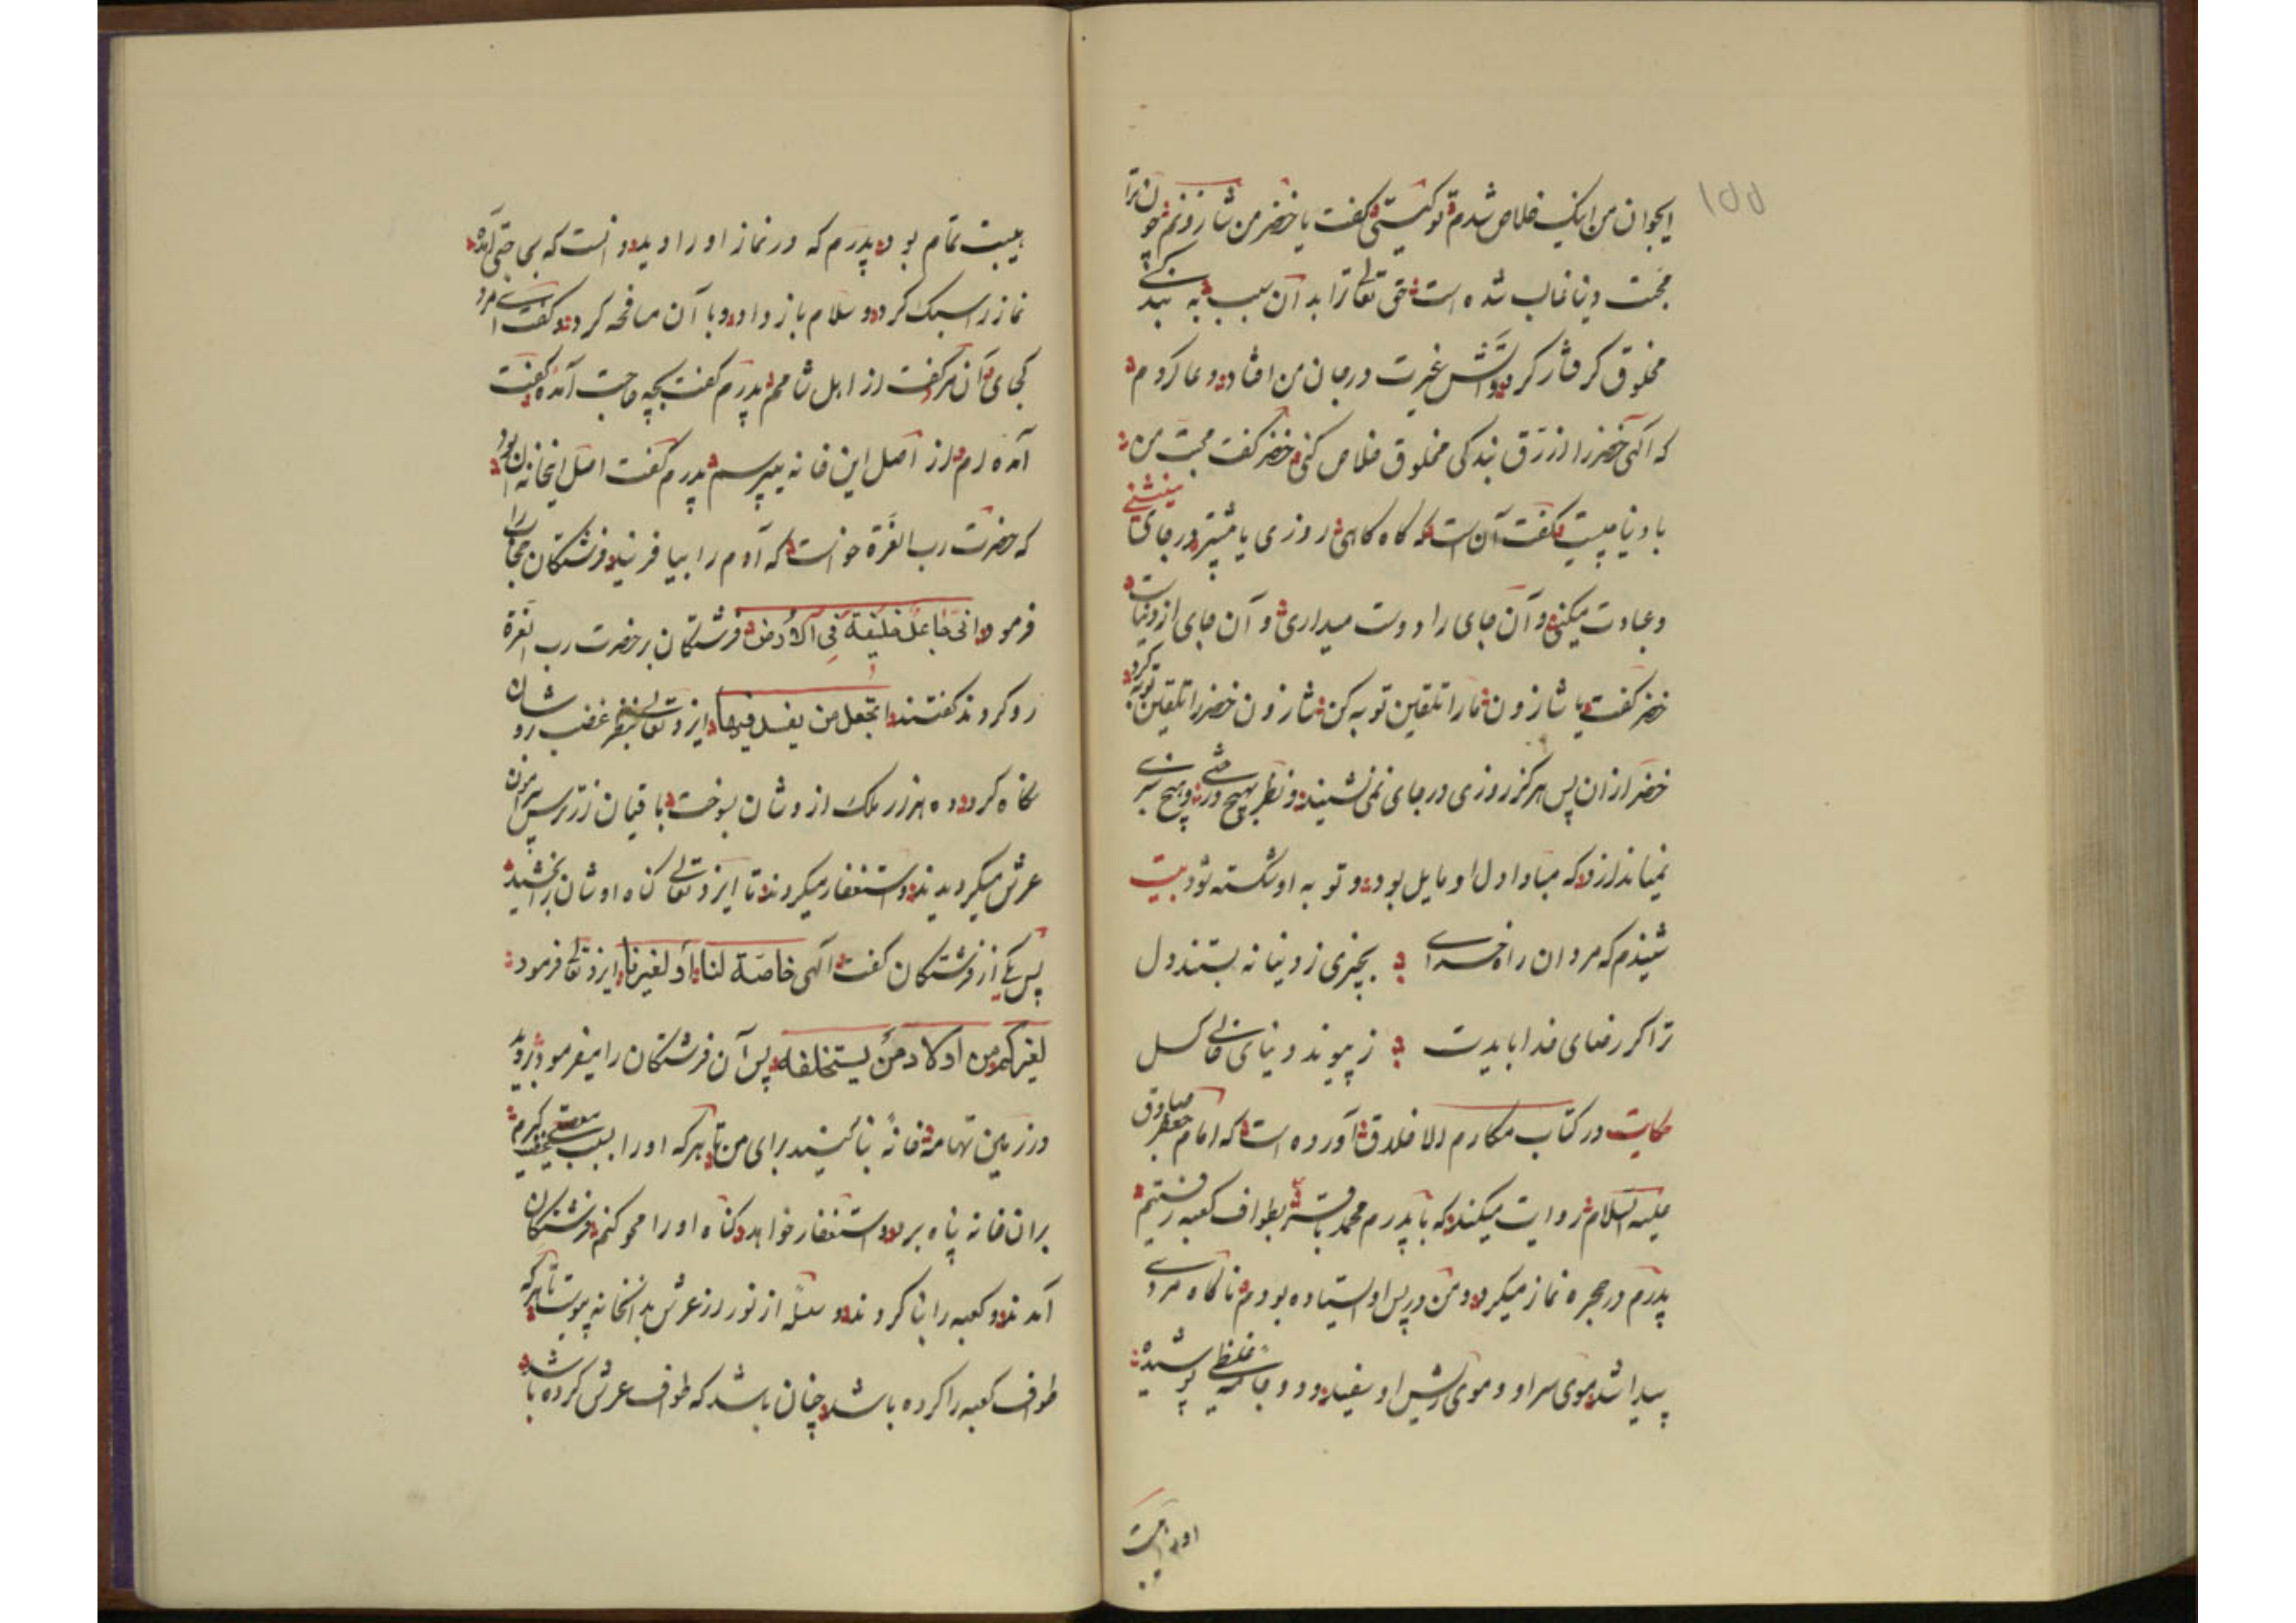 ١٥٥
ایجوان من اینک خلاص شدم تو کیستی گفت یا خضر من شازونم چون ترا
محبت دنیا غالب شده است حق تعالی ترا بدان سبب به بندگی
مخلوق گرفتار کرد و آتش غیرت در جان من افتاد و دعا کردم
که الهی خضر را از رق بندگی مخلوق خلاص کنی خضر گفت محبت من
با دنیا چیست گفت آن است که گاه گاهی روزی یا بیشتر در جای مینشینی
و عبادت میکنی و آن جای را دوست میداری و آن جای از دنیاست
خضر گفت یا شازون مارا تلقین توبه کن شازون خضر را تلقین توبه کرد
خضر ازان پس هرگز روزی در جای نمی نشیند و نظر بهیچ درختی و هیچ سبزی
نمیاندازد که مبادا دل او مایل بود و توبه او شکسته شود بیت
شنیدم که مردان راه خدای بچیزی ز دنیا نه بستند دل
ترا گر رضای خدا بایدت ز پیوند دنیای فانی گسل
حکایت در کتاب مکارم الاخلاق آورده است که امام جعفر صادق
علیه السلام روایت میکند که با پدرم محمد باقر بطواف کعبه رفتیم
پدرم در حجره نماز میکرد و من در پس او استاده بودم ناگاه مردی
پیدا شد موی سر او و موی ریش او سفید و دو جامه غلیظی پوشیده
او را هیبت
هیبت تمام بود پدرم که در نماز او را دید دانست که بی حقی آمده
نماز را سبک کرد و سلام باز داد و با آن مصافحه کرد و گفت ای مرد
کجای آن مرد گفت از اهل شامم پدرم گفت بچه حاجت آمده گفت
آمده ام از اصل این خانه بپرسم پدرم گفت اصل اینخانه آن بود
که حضرت رب العزة خواست که آدم را بیافریند فرشتگان حجاب را
فرمود انی جاعل خلیفة فی الارض فرشتگان بر حضرت رب العزة
رو کردند گفتند اتجعل من یفسد فیها ایزد تعالی بنظر غضب در وشان
نگاه کرد ده هزار ملک از وشان بسوخت باقیان از ترس پیرامون
عرش میگردیدند و استغفار میکردند تا ایزد تعالی گناه اوشان را بخشید
پس یکی از فرشتگان گفت الهی خاصة لنا او لغیرنا ایزد تعالی فرمود
لغیرکم من اولاد من یستخلفه پس آن فرشتگان را میفرمود بروید
در زمین تهامه خانهٔ بنا کنید برای من تا هرکه او را بسبب معصیتی بگیرم
بران خانه پناه برد و استغفار خواهد گناه او را محو کنم فرشتگان
آمدند و کعبه را بنا کردند و شعلهٔ از نور از عرش بدانخانه پیوست تا هرکه
طواف کعبه را کرده باشد چنان باشد که طواف عرش کرده باشد